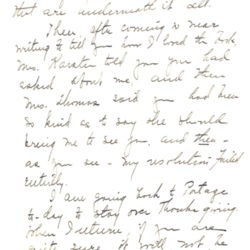 that are underneath it all.
Then, after coming so near
writing to tell you how I loved the book
Mrs. told you you had
asked about me, and then
Mrs. Thomas said you had been
so kind as to say she should
bring me to see you, and then -
as you see - my resolution failed
entirely.
I am going back to Portage
to-day to stay over Thanksgiving
When I return, if you are
quite sure it will not be